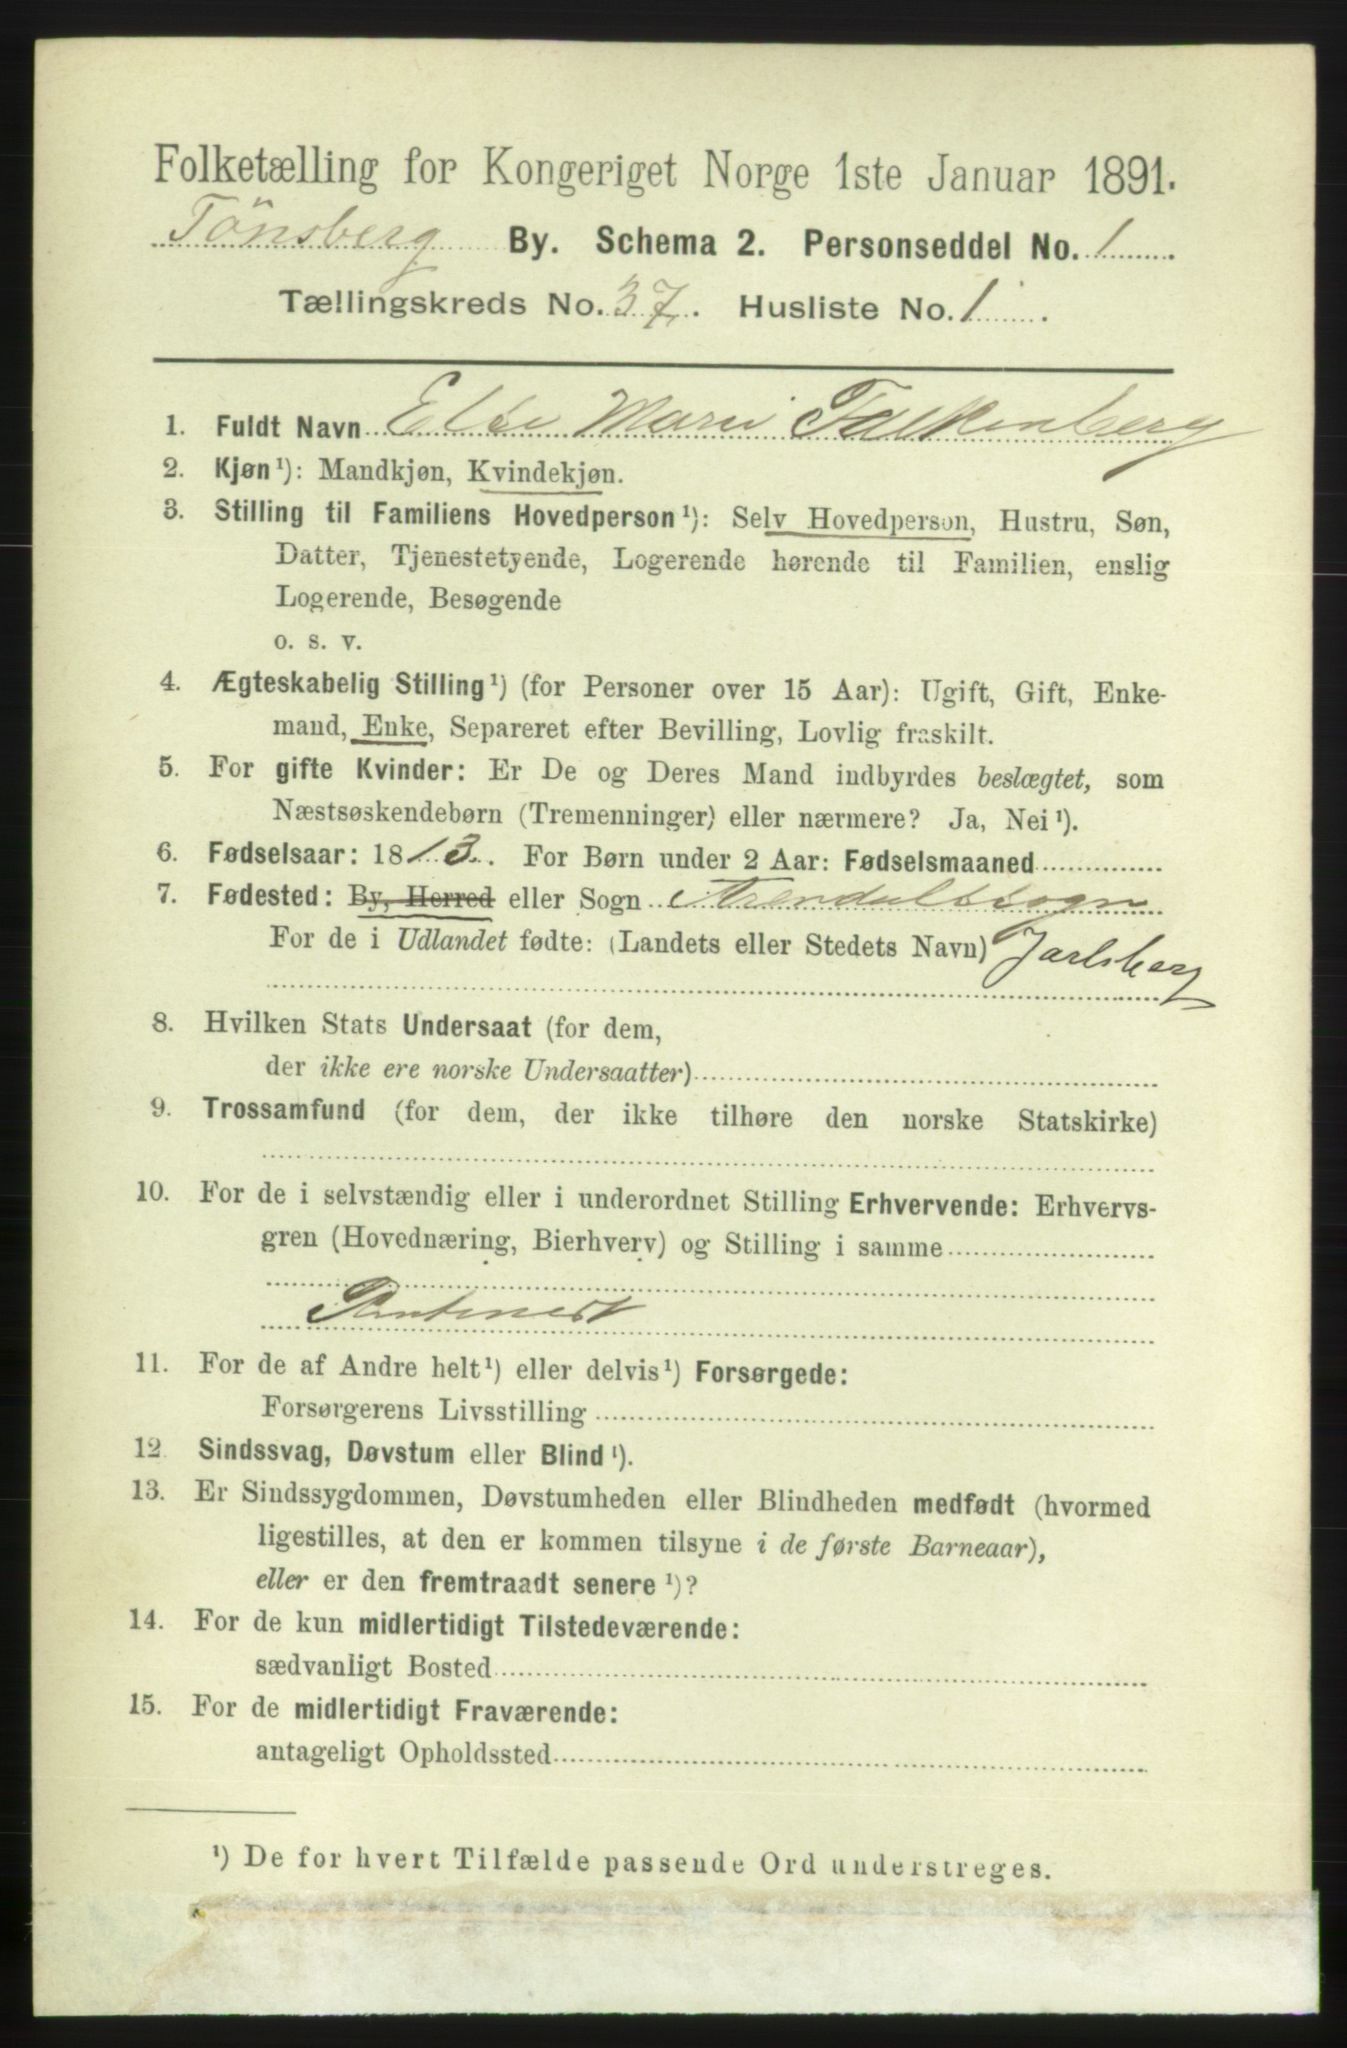 Folketælling for Kongeriget Norge 1ste Januar 1891.
Tönsberg By. Schema 2. Personseddel No. 1
Tællingskreds No. 37. Husliste No. 1.
1. Fuldt Navn Else Marie Falkenberg
2. Kjøn¹): Mandkjøn, Kvindekjøn.
3. Stilling til Familiens Hovedperson¹): Selv Hovedperson, Hustru, Søn,
Datter, Tjenestetyende, Logerende hørende til Familien, enslig
Logerende, Besøgende
o. s. v.
4. Ægteskabelig Stilling¹) (for Personer over 15 Aar): Ugift, Gift, Enke-
mand, Enke, Separeret efter Bevilling, Lovlig fraskilt.
5. For gifte Kvinder: Er De og Deres Mand indbyrdes beslægtet, som
Næstsøskendebørn (Tremenninger) eller nærmere? Ja, Nei¹).
6. Fødselsaar: 1813. For Børn under 2 Aar: Fødselsmaaned
7. Fødested: By, Herred eller Sogn
For de i Udlandet fødte: (Landets eller Stedets Navn) Jarlsberg
8. Hvilken Stats Undersaat (for dem,
der ikke ere norske Undersaatter)
9. Trossamfund (for dem, der ikke tilhøre den norske Statskirke)
10. For de i selvstændig eller i underordnet Stilling Erhvervende: Erhvervs-
gren (Hovednæring, Bierhverv) og Stilling i samme
11. For de af Andre helt¹) eller delvis¹) Forsørgede:
Forsørgerens Livsstilling
12. Sindssvag, Døvstum eller Blind¹).
13. Er Sindssygdommen, Døvstumheden eller Blindheden medfødt (hvormed
ligestilles, at den er kommen tilsyne i de første Barneaar),
eller er den fremtraadt senere¹)?
14. For de kun midlertidigt Tilstedeværende:
sædvanligt Bosted
15. For de midlertidigt Fraværende:
antageligt Opholdssted
¹) De for hvert Tilfælde passende Ord understreges.